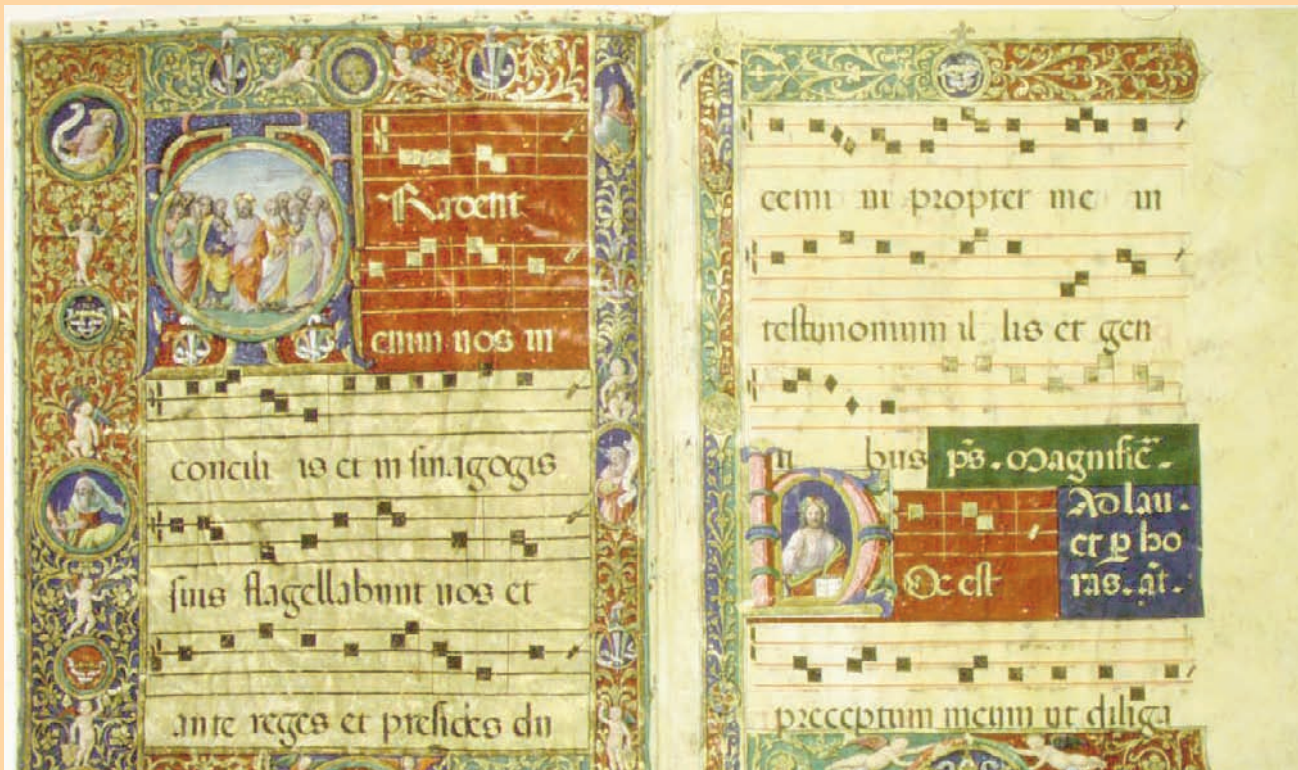 TRadent
enim uos in
concili is et in sinagogis
suis flagellabunt uos et
ante reges et presides du
cemi ni propter me in
testimonium il lis et gen
ti bus ps̄. Magnific̄.
Ad lau.
et ꝑ ho
ras. añt.
HOc est
preceptum meum ut diliga